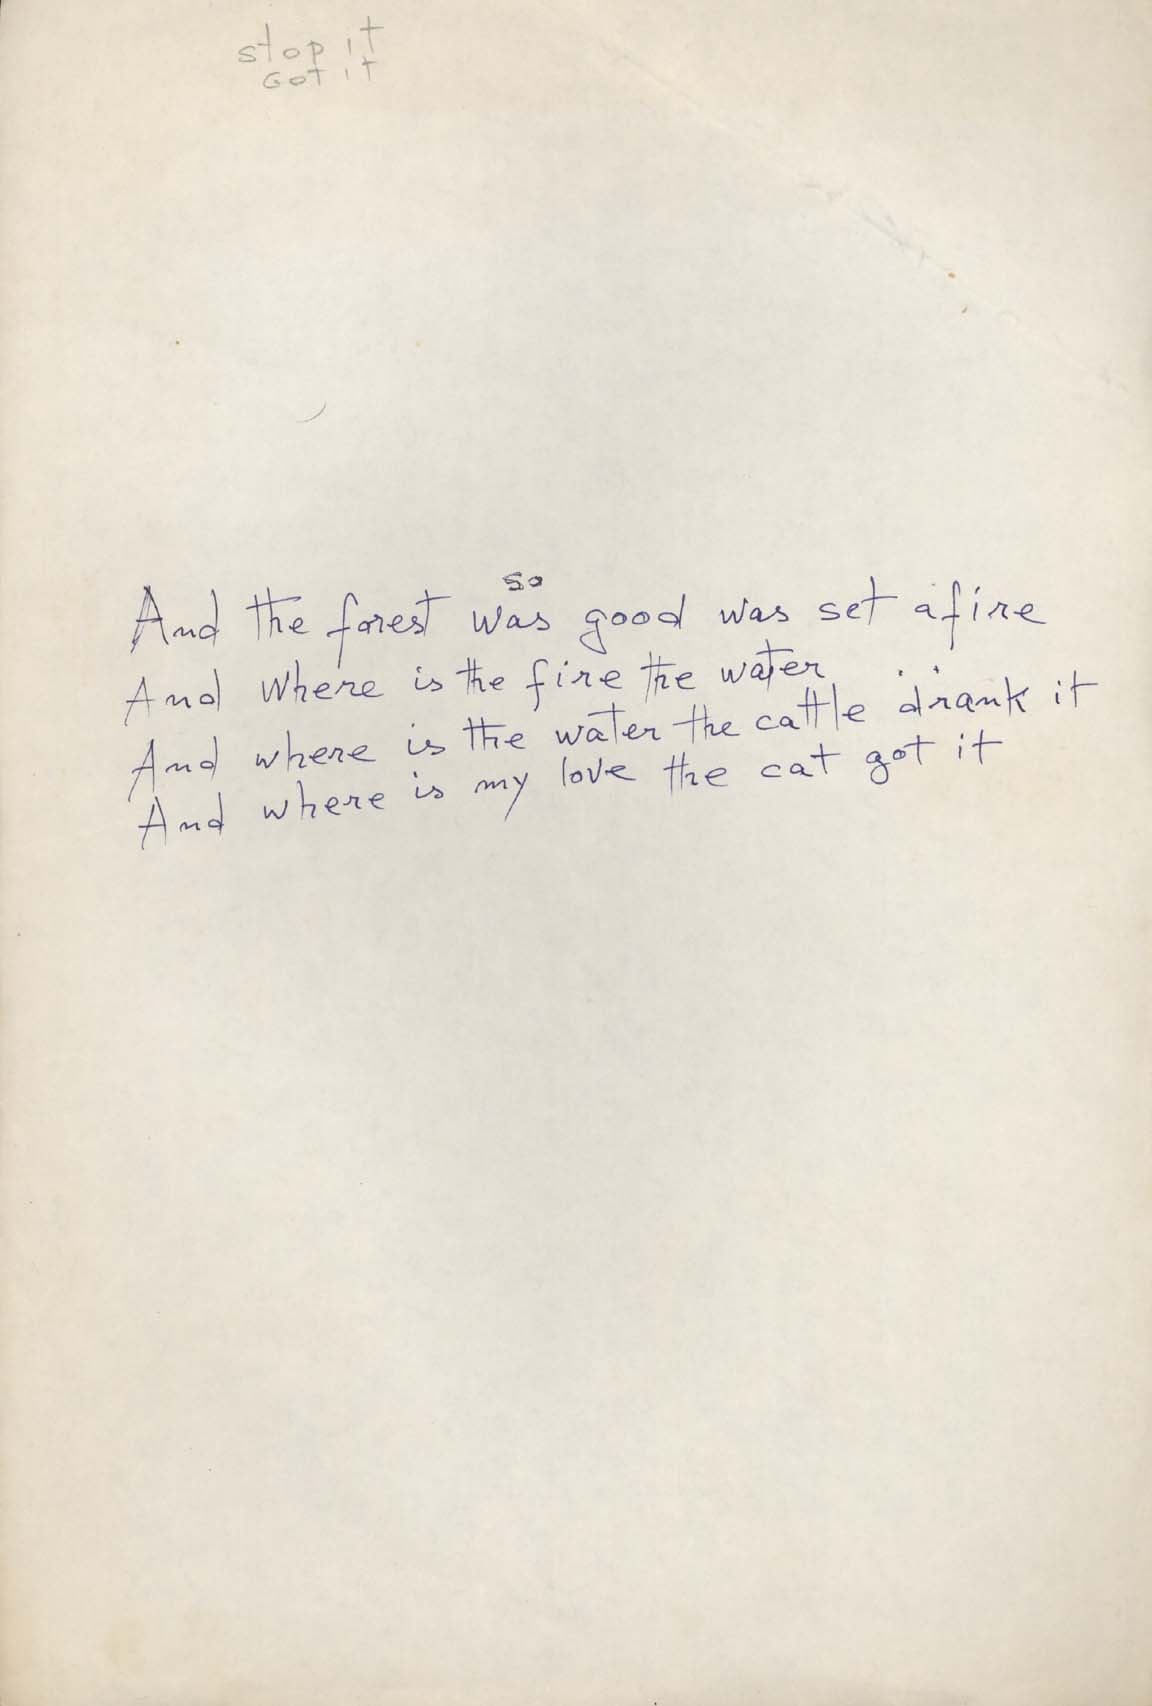 stop it
Got it
so
And the forest was good was set afire
And where is the fire the water
And where is the water the cattle drank it
And where is my love the cat got it